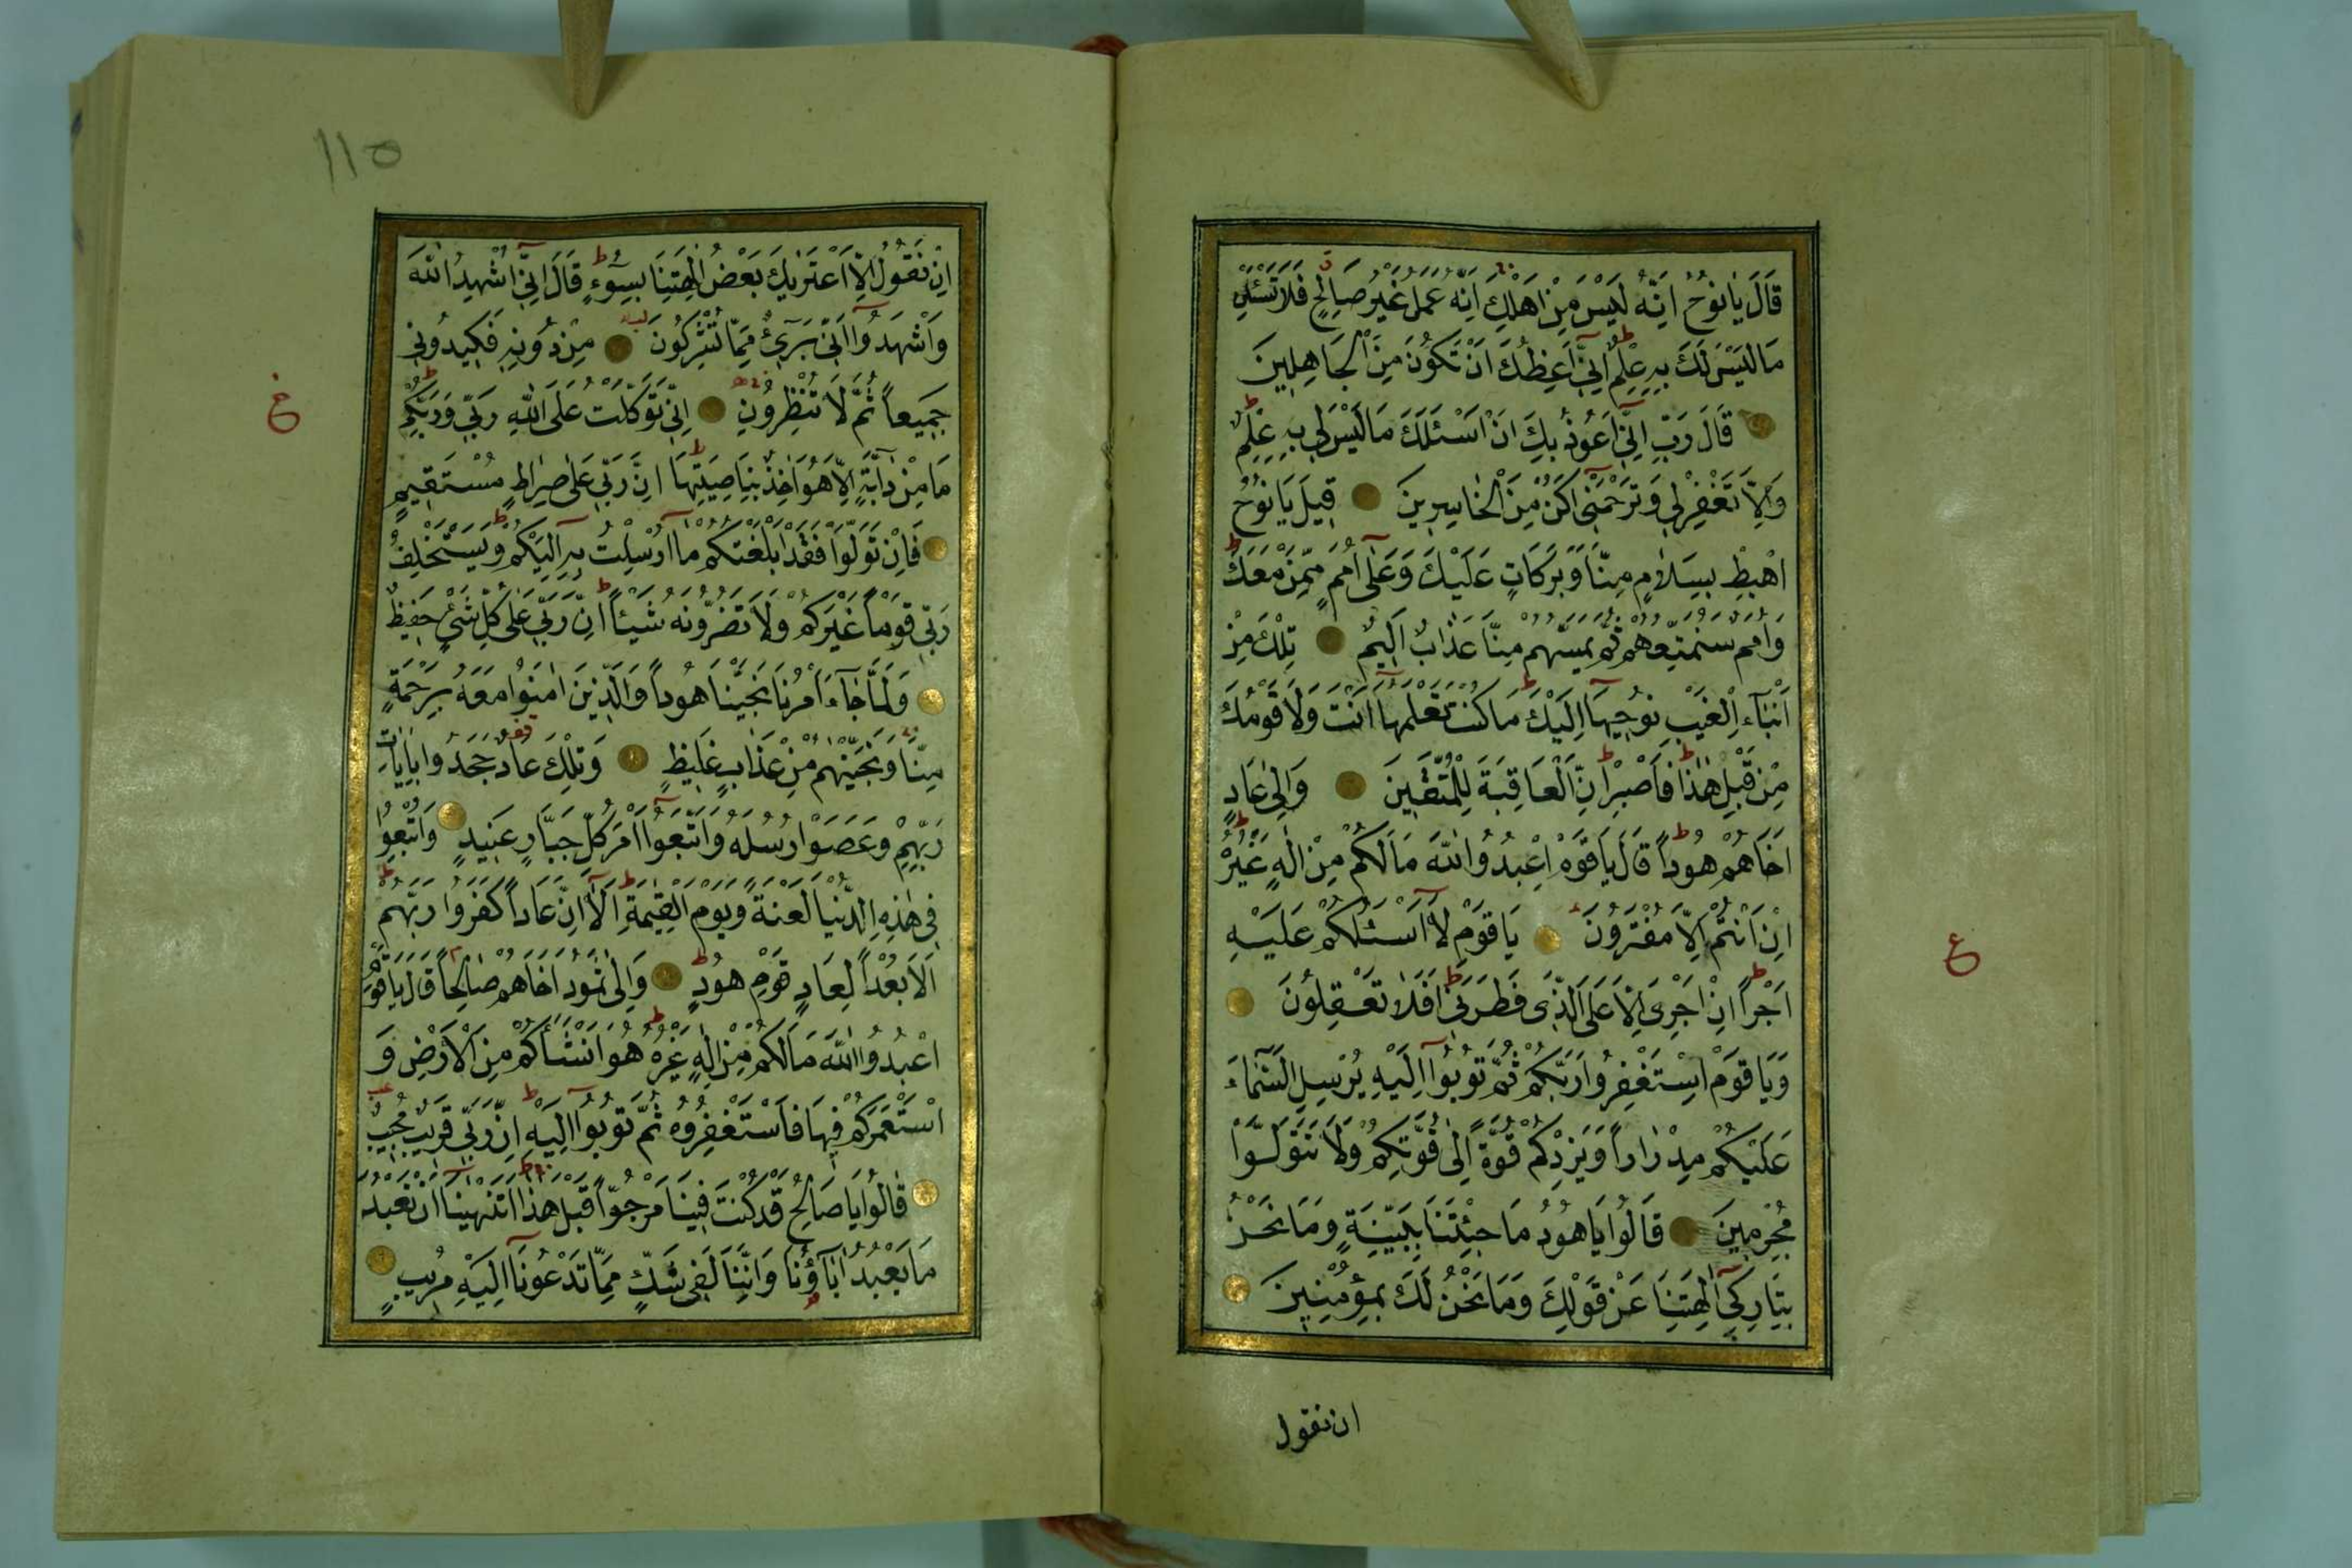 قَالَ يَا نُوحُ اِنَّهُ لَيْسَ مِنْ اَهْلِكَ اِنَّهُ عَمَلٌ غَيْرُ صَالِحٍ فَلَا تَسْئَلْنِ
مَا لَيْسَ لَكَ بِهِ عِلْمٌ اِنِّي اَعِظُكَ اَنْ تَكُونَ مِنَ الْجَاهِلِينَ
قَالَ رَبِّ اِنِّي اَعُوذُ بِكَ اَنْ اَسْئَلَكَ مَا لَيْسَ لِي بِهِ عِلْمٌ
وَاِلَّا تَغْفِرْ لِي وَتَرْحَمْنِي اَكُنْ مِنَ الْخَاسِرِينَ قِيلَ يَا نُوحُ
اهْبِطْ بِسَلَامٍ مِنَّا وَبَرَكَاتٍ عَلَيْكَ وَعَلٰى اُمَمٍ مِمَّنْ مَعَكَ
وَاُمَمٌ سَنُمَتِّعُهُمْ ثُمَّ يَمَسُّهُمْ مِنَّا عَذَابٌ اَلِيمٌ تِلْكَ مِنْ
اَنْبَاءِ الْغَيْبِ نُوحِيهَا اِلَيْكَ مَا كُنْتَ تَعْلَمُهَا اَنْتَ وَلَا قَوْمُكَ
مِنْ قَبْلِ هٰذَا فَاصْبِرْ اِنَّ الْعَاقِبَةَ لِلْمُتَّقِينَ وَاِلٰى عَادٍ
اَخَاهُمْ هُودًا قَالَ يَا قَوْمِ اعْبُدُوا اللّٰهَ مَا لَكُمْ مِنْ اِلٰهٍ غَيْرُهُ
اِنْ اَنْتُمْ اِلَّا مُفْتَرُونَ يَا قَوْمِ لَا اَسْئَلُكُمْ عَلَيْهِ
اَجْرًا اِنْ اَجْرِيَ اِلَّا عَلَى الَّذِي فَطَرَنِي اَفَلَا تَعْقِلُونَ
ع
وَيَا قَوْمِ اسْتَغْفِرُوا رَبَّكُمْ ثُمَّ تُوبُوا اِلَيْهِ يُرْسِلِ السَّمَاءَ
عَلَيْكُمْ مِدْرَارًا وَيَزِدْكُمْ قُوَّةً اِلٰى قُوَّتِكُمْ وَلَا تَتَوَلَّوْا
مُجْرِمِينَ قَالُوا يَا هُودُ مَا جِئْتَنَا بِبَيِّنَةٍ وَمَا نَحْنُ
بِتَارِكِي اٰلِهَتِنَا عَنْ قَوْلِكَ وَمَا نَحْنُ لَكَ بِمُؤْمِنِينَ
ان نقول
١١٥
اِنْ نَقُولُ اِلَّا اعْتَرٰيكَ بَعْضُ اٰلِهَتِنَا بِسُوءٍ قَالَ اِنِّي اُشْهِدُ اللّٰهَ
وَاشْهَدُوا اَنِّي بَرِيءٌ مِمَّا تُشْرِكُونَ مِنْ دُونِهِ فَكِيدُونِي
جَمِيعًا ثُمَّ لَا تُنْظِرُونِ اِنِّي تَوَكَّلْتُ عَلَى اللّٰهِ رَبِّي وَرَبِّكُمْ
مَا مِنْ دَابَّةٍ اِلَّا هُوَ اٰخِذٌ بِنَاصِيَتِهَا اِنَّ رَبِّي عَلٰى صِرَاطٍ مُسْتَقِيمٍ
فَاِنْ تَوَلَّوْا فَقَدْ اَبْلَغْتُكُمْ مَا اُرْسِلْتُ بِهِ اِلَيْكُمْ وَيَسْتَخْلِفُ
رَبِّي قَوْمًا غَيْرَكُمْ وَلَا تَضُرُّونَهُ شَيْئًا اِنَّ رَبِّي عَلٰى كُلِّ شَيْءٍ حَفِيظٌ
وَلَمَّا جَاءَ اَمْرُنَا نَجَّيْنَا هُودًا وَالَّذِينَ اٰمَنُوا مَعَهُ بِرَحْمَةٍ
مِنَّا وَنَجَّيْنٰهُمْ مِنْ عَذَابٍ غَلِيظٍ وَتِلْكَ عَادٌ جَحَدُوا بِاٰيَاتِ
رَبِّهِمْ وَعَصَوْا رُسُلَهُ وَاتَّبَعُوا اَمْرَ كُلِّ جَبَّارٍ عَنِيدٍ وَاُتْبِعُوا
فِي هٰذِهِ الدُّنْيَا لَعْنَةً وَيَوْمَ الْقِيٰمَةِ اَلَا اِنَّ عَادًا كَفَرُوا رَبَّهُمْ
اَلَا بُعْدًا لِعَادٍ قَوْمِ هُودٍ وَاِلٰى ثَمُودَ اَخَاهُمْ صَالِحًا قَالَ يَا قَوْمِ
اعْبُدُوا اللّٰهَ مَا لَكُمْ مِنْ اِلٰهٍ غَيْرُهُ هُوَ اَنْشَاَكُمْ مِنَ الْاَرْضِ وَ
اسْتَعْمَرَكُمْ فِيهَا فَاسْتَغْفِرُوهُ ثُمَّ تُوبُوا اِلَيْهِ اِنَّ رَبِّي قَرِيبٌ مُجِيبٌ
قَالُوا يَا صَالِحُ قَدْ كُنْتَ فِينَا مَرْجُوًّا قَبْلَ هٰذَا اَتَنْهٰينَا اَنْ نَعْبُدَ
مَا يَعْبُدُ اٰبَاؤُنَا وَاِنَّنَا لَفِي شَكٍّ مِمَّا تَدْعُونَا اِلَيْهِ مُرِيبٍ